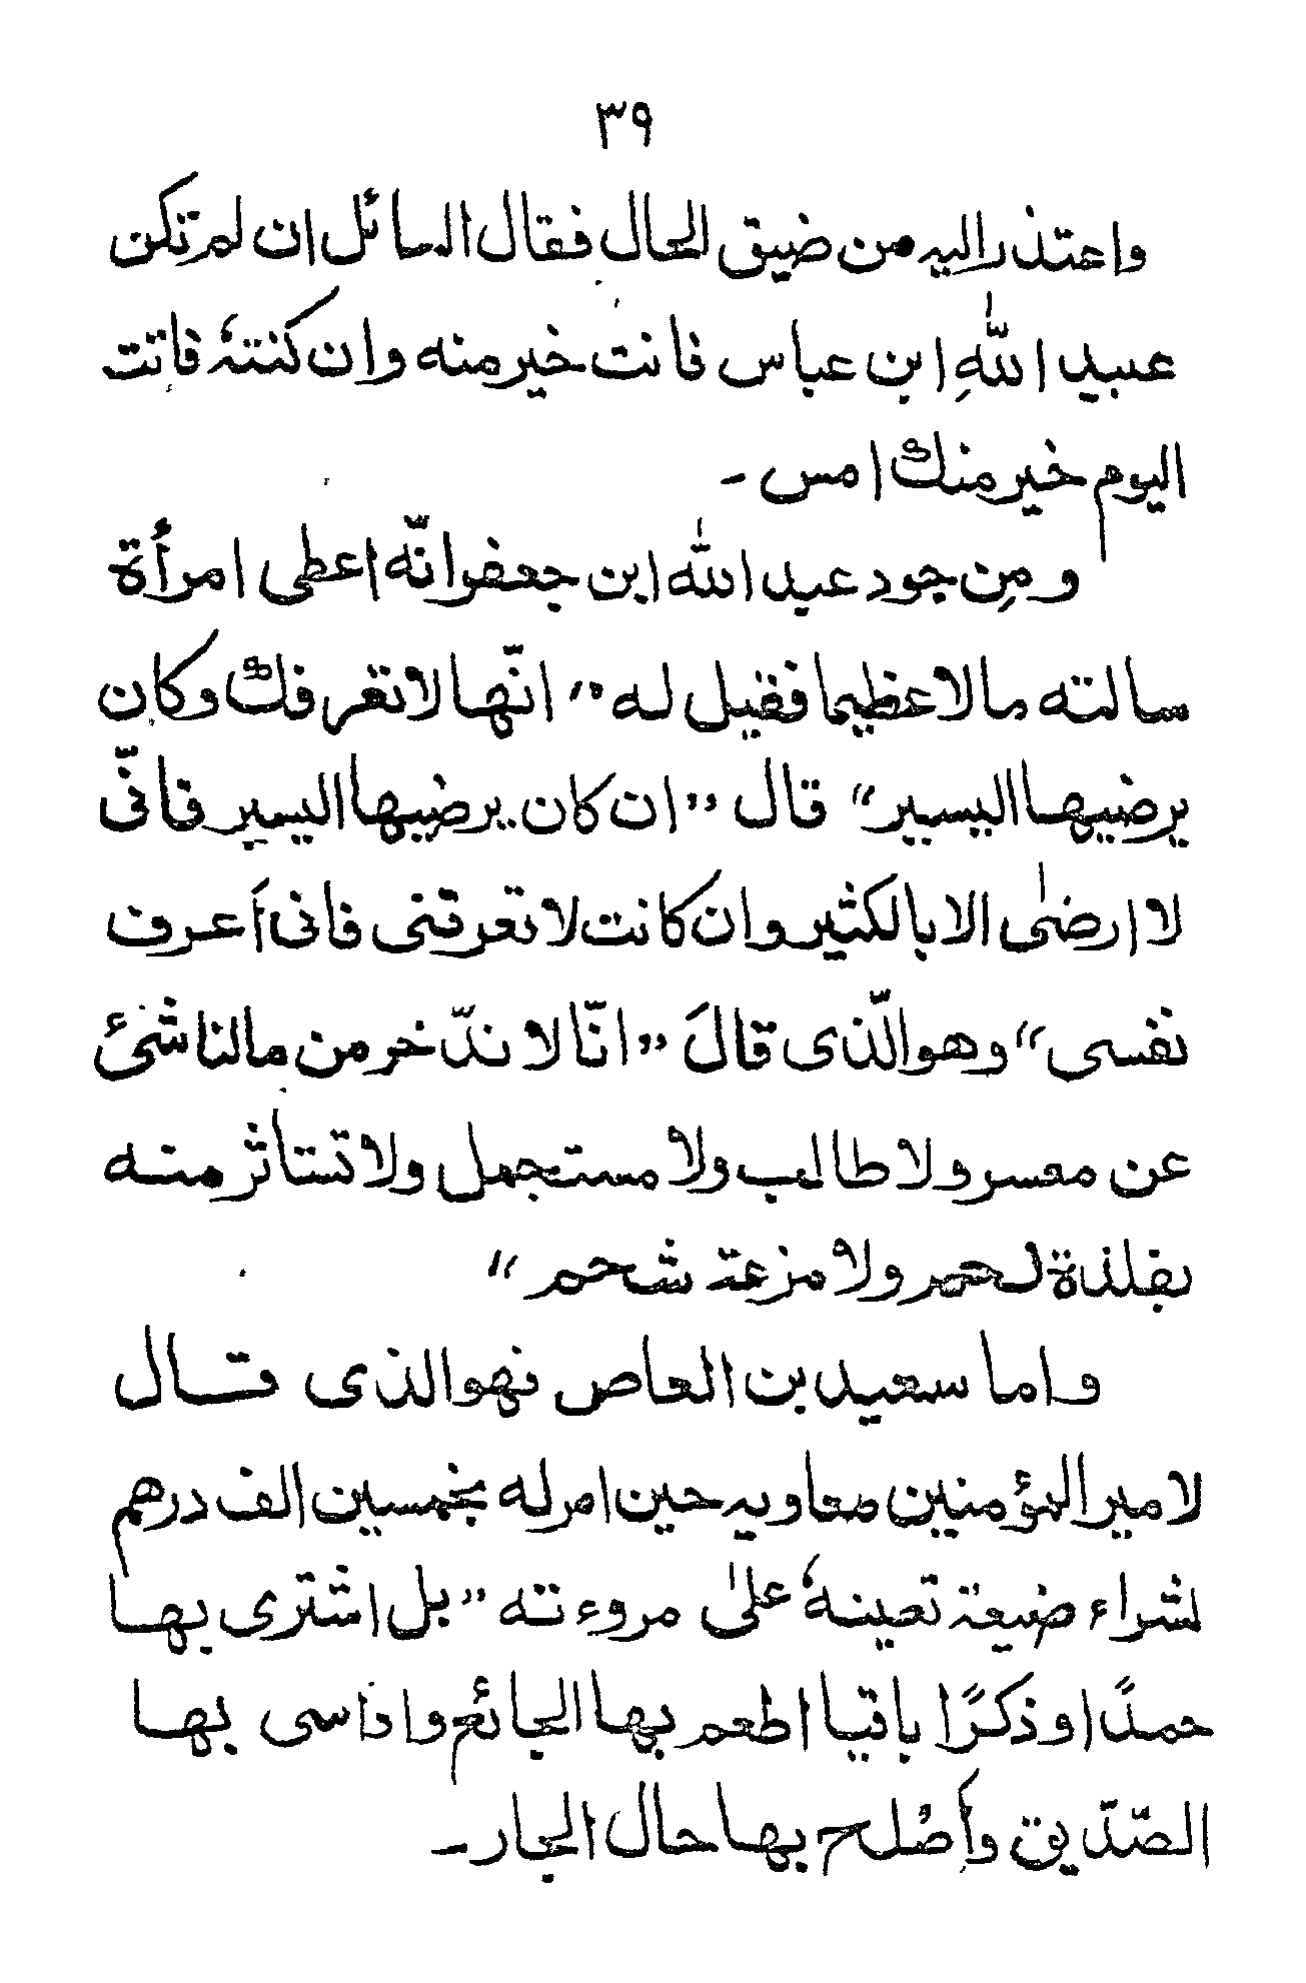 ٣٩
واعتذر اليه من ضيق الحال فقال السائل ان لم تكن
عبيد اللّٰهِ ابن عباس فانت خير منه وان كنتهٗ فانت
اليوم خير منك امس ـ
ومِن جود عبد اللّٰه ابن جعفر انّه اعطى امرأة
سالته مالا عظيما فقيل له "انّها لا تعرفك وكان
يرضيها اليسير" قال "ان كان يرضيها اليسير فانّى
لا ارضىٰ الا بالكثير وان كانت لا تعرفنى فانى أَعرف
نفسى" وهو الّذى قالَ "انّا لا ندّخر من مالنا شئ
عن معسر ولا طالب ولا مستجمل ولا تستاثر منه
بفلذة لحم ولا مزعة شحم"
واما سعيد بن العاص فهو الذى قال
لامير المؤمنين معاويه حين امر له بخمسين الف درهم
لشراء ضيعة تعينهٗ علىٰ مروءته "بل اشترى بها
حمدًا وذكرًا باقيا اطعم بها الجائع واداسى بها
الصّدّيق وأصْلح بها حال الجار ـ